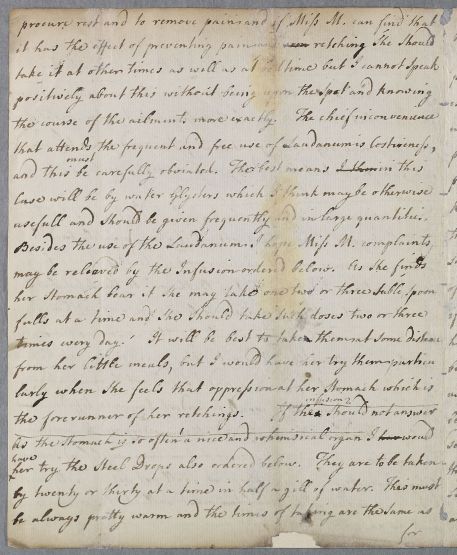 procure rest and to remove pain and if Miss M. can find that
it has the effect of preventing pain and retching She should
take it at other times as well as at bedtime but I cannot speak
positively about this without being upon the spot and knowing
the course of the ailments more exactly. The chief inconvenience
that attends the frequent and free use of Laudanum is costiveness,
and this must be carefully obviated. The best means I think in this
Case will be by water Glysters which I think may be otherwise
usefull and should be given frequently and in large quantities.
Besides the use of the Laudanum I hope Miss M. complaints
may be releived by the Infusion ordered below. As she finds
her Stomach bear it She may take one two or three table spoon
fulls at a time and She should take such doses two or three
times every day. It will be best to take them at some distance
from her little meals, but I would have her try them particu
larly when She feels that oppression at her Stomach which is
the forerunner of her retchings. If this infusion should not answer
as the Stomach is so often a nice and whimsical organ I would
have her try the Steel Drops also ordered below. They are to be taken
by twenty or thirty at a time in half a gill of water. This must
be always pretty warm and the times of taking are the same as
for